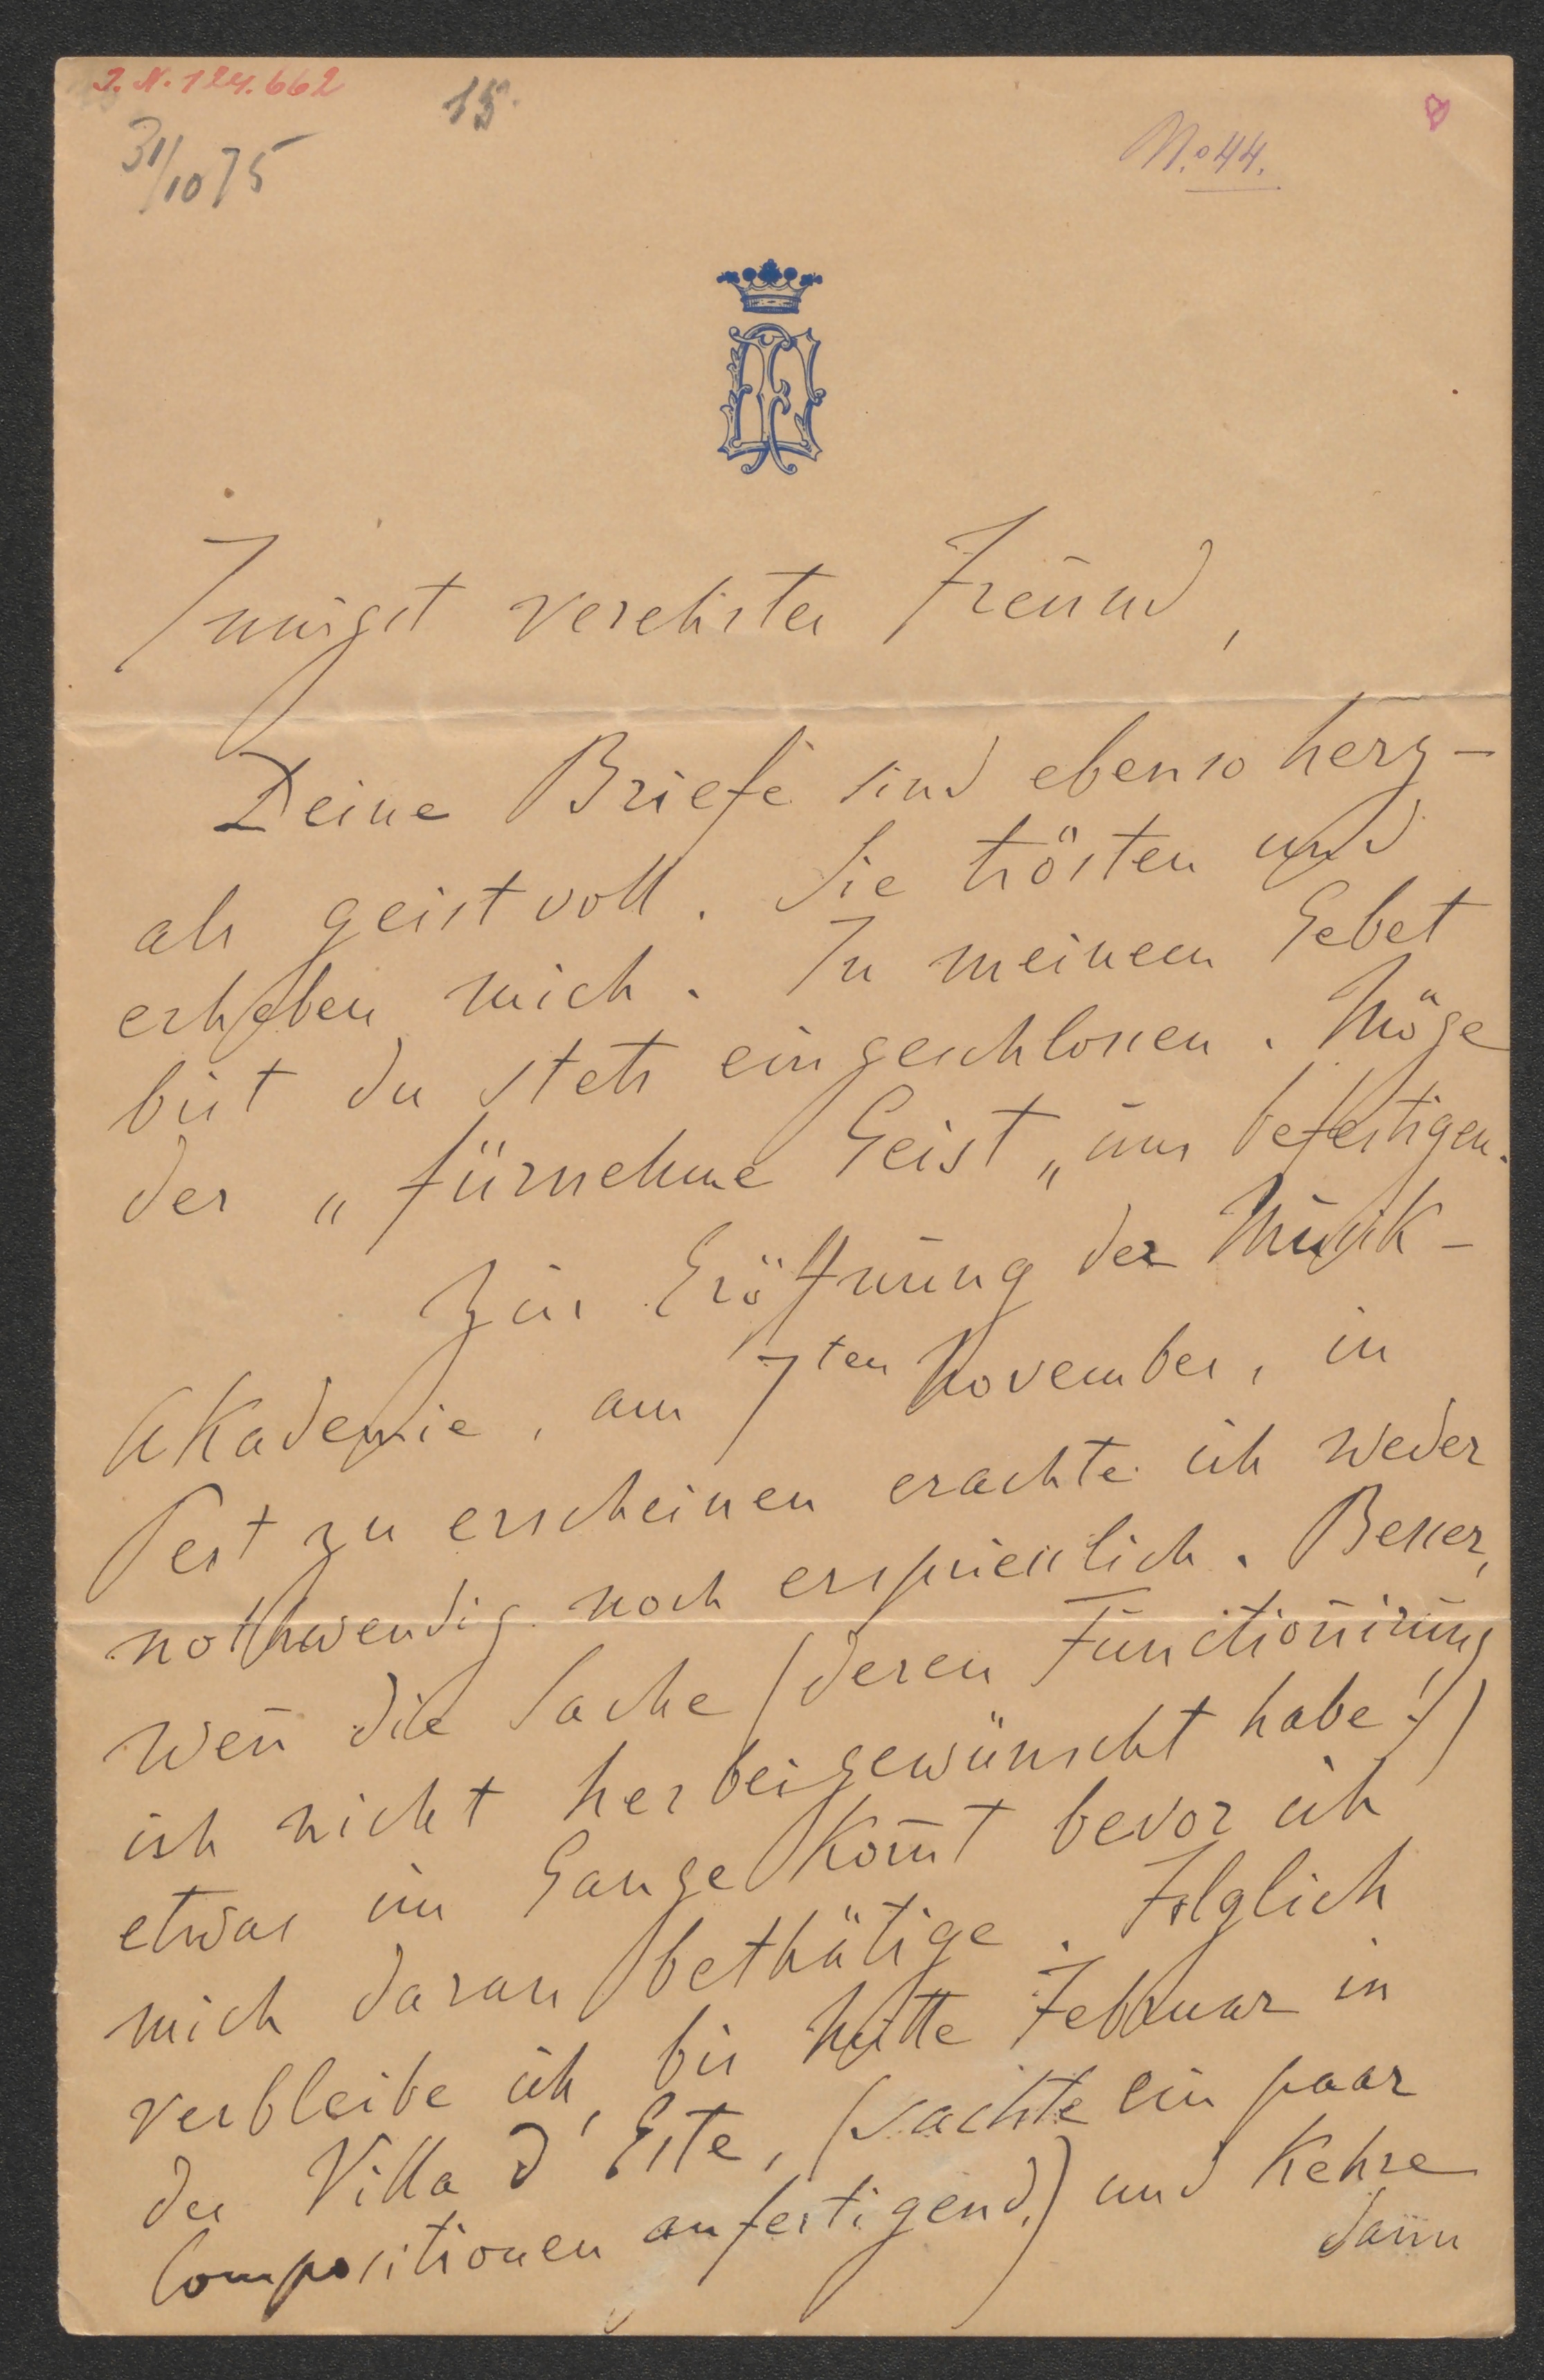 I. N. 124.662
15.
31/10 75
N.o 44.
Innigst verehrter Freund,
Deine Briefe sind ebenso herz-
als geistvoll. Sie trösten und
erheben mich. In meinem Gebet
bist du stets eingeschlossen. Möge
der „fürnehme Geist„ uns befestigen.
Zur Eröffnung der Musik-
Akademie, am 7ten November, in
Pest zu erscheinen erachte ich weder
nothwendig noch erspriesslich. Besser,
weñ die Sache (deren Functionirung
ich nicht herbeigewünscht habe!)
etwas im Gange kom̄t bevor ich
mich daran bethätige. Folglich
verbleibe ich, bis Mitte Februar in
der Villa d'Este, (sachte ein paar
Compositionen anfertigend,) und kehre
dann